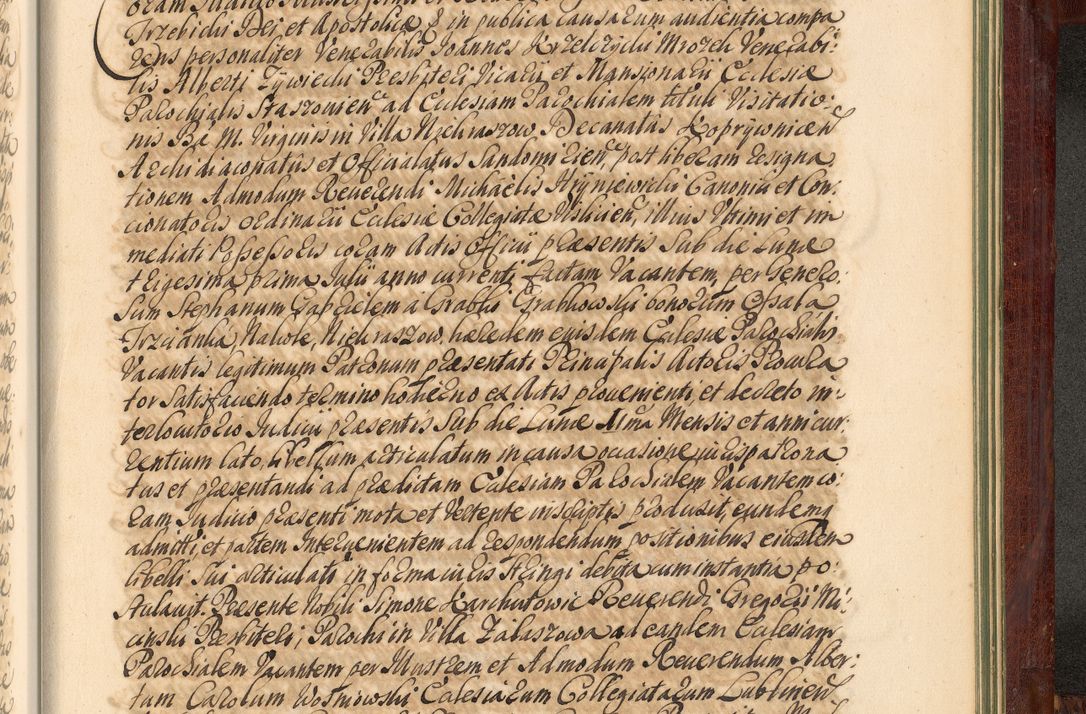 Trzebicki Dei et Apostolicæ S in publica causarum audientia compa
rens personaliter Venerabilis Joannes Krzelczycki Mrozek Venerabi-
lis Alberti Zywiecki Presbiteri Vicarii et Mansionarii Ecclesiæ
Parochialis Staszouien ad Ecclesiam Parochialem tituli Visitatio:
nis B M. Virginis in Villa Niekraszow Decanatus Koprywnicen
Archidiaconatus et Officialatus Sandomirien post liberam resigna
tionem Admodum Reuerendi Michaelis Canonici et Con:
cionatoris ordinarii Ecclesiæ Collegiatæ Vislicien, illius Vltimi et im
mediati Possessoris coram Actis Officii præsentis sub die Lunæ
trigesima prima Julii anno currenti factam Vacantem, per Genero:
sum Stephanum Gabrielem a Grabki Grabkowski bonorum Ossala
Trzcianka, Nakole, Niekraszow, hæredem eiusdem Ecclesiæ Parochialis
Vacantis legitimum Patronum præsentati Principalis Actoris Procura
tor satisfaciendo termino hodierno ex Actis prouenienti, et decreto in
terlocutorio Judicii præsentis sub die Lunæ 11ma Mensis et anni cur
rentium lato, libellum articulatum in causa occasione iurispatrona
tus et præsentandi ad prædictam Ecclesiam Parochialem Vacantem co:
ram Judicio præsenti mota et vertente inscriptis produxit, eundemq
admitti, et partem Interuenientem ad respondendum positionibus eiusdem
libelli sui articulati in forma iuris stringi debita cum instantia po:
stulauit. Præsente Nobili Simone Karchutowic Reuerendi Gregorii Mi:
cinski Presbiteri, Parochi in Villa Zalaszowa ad eandem Ecclesiam
Parochialem Vacantem per Illustrem et Admodum Reuerendum Alber:
tum Carolum Ecclesiarum Collegiatarum Lublinen